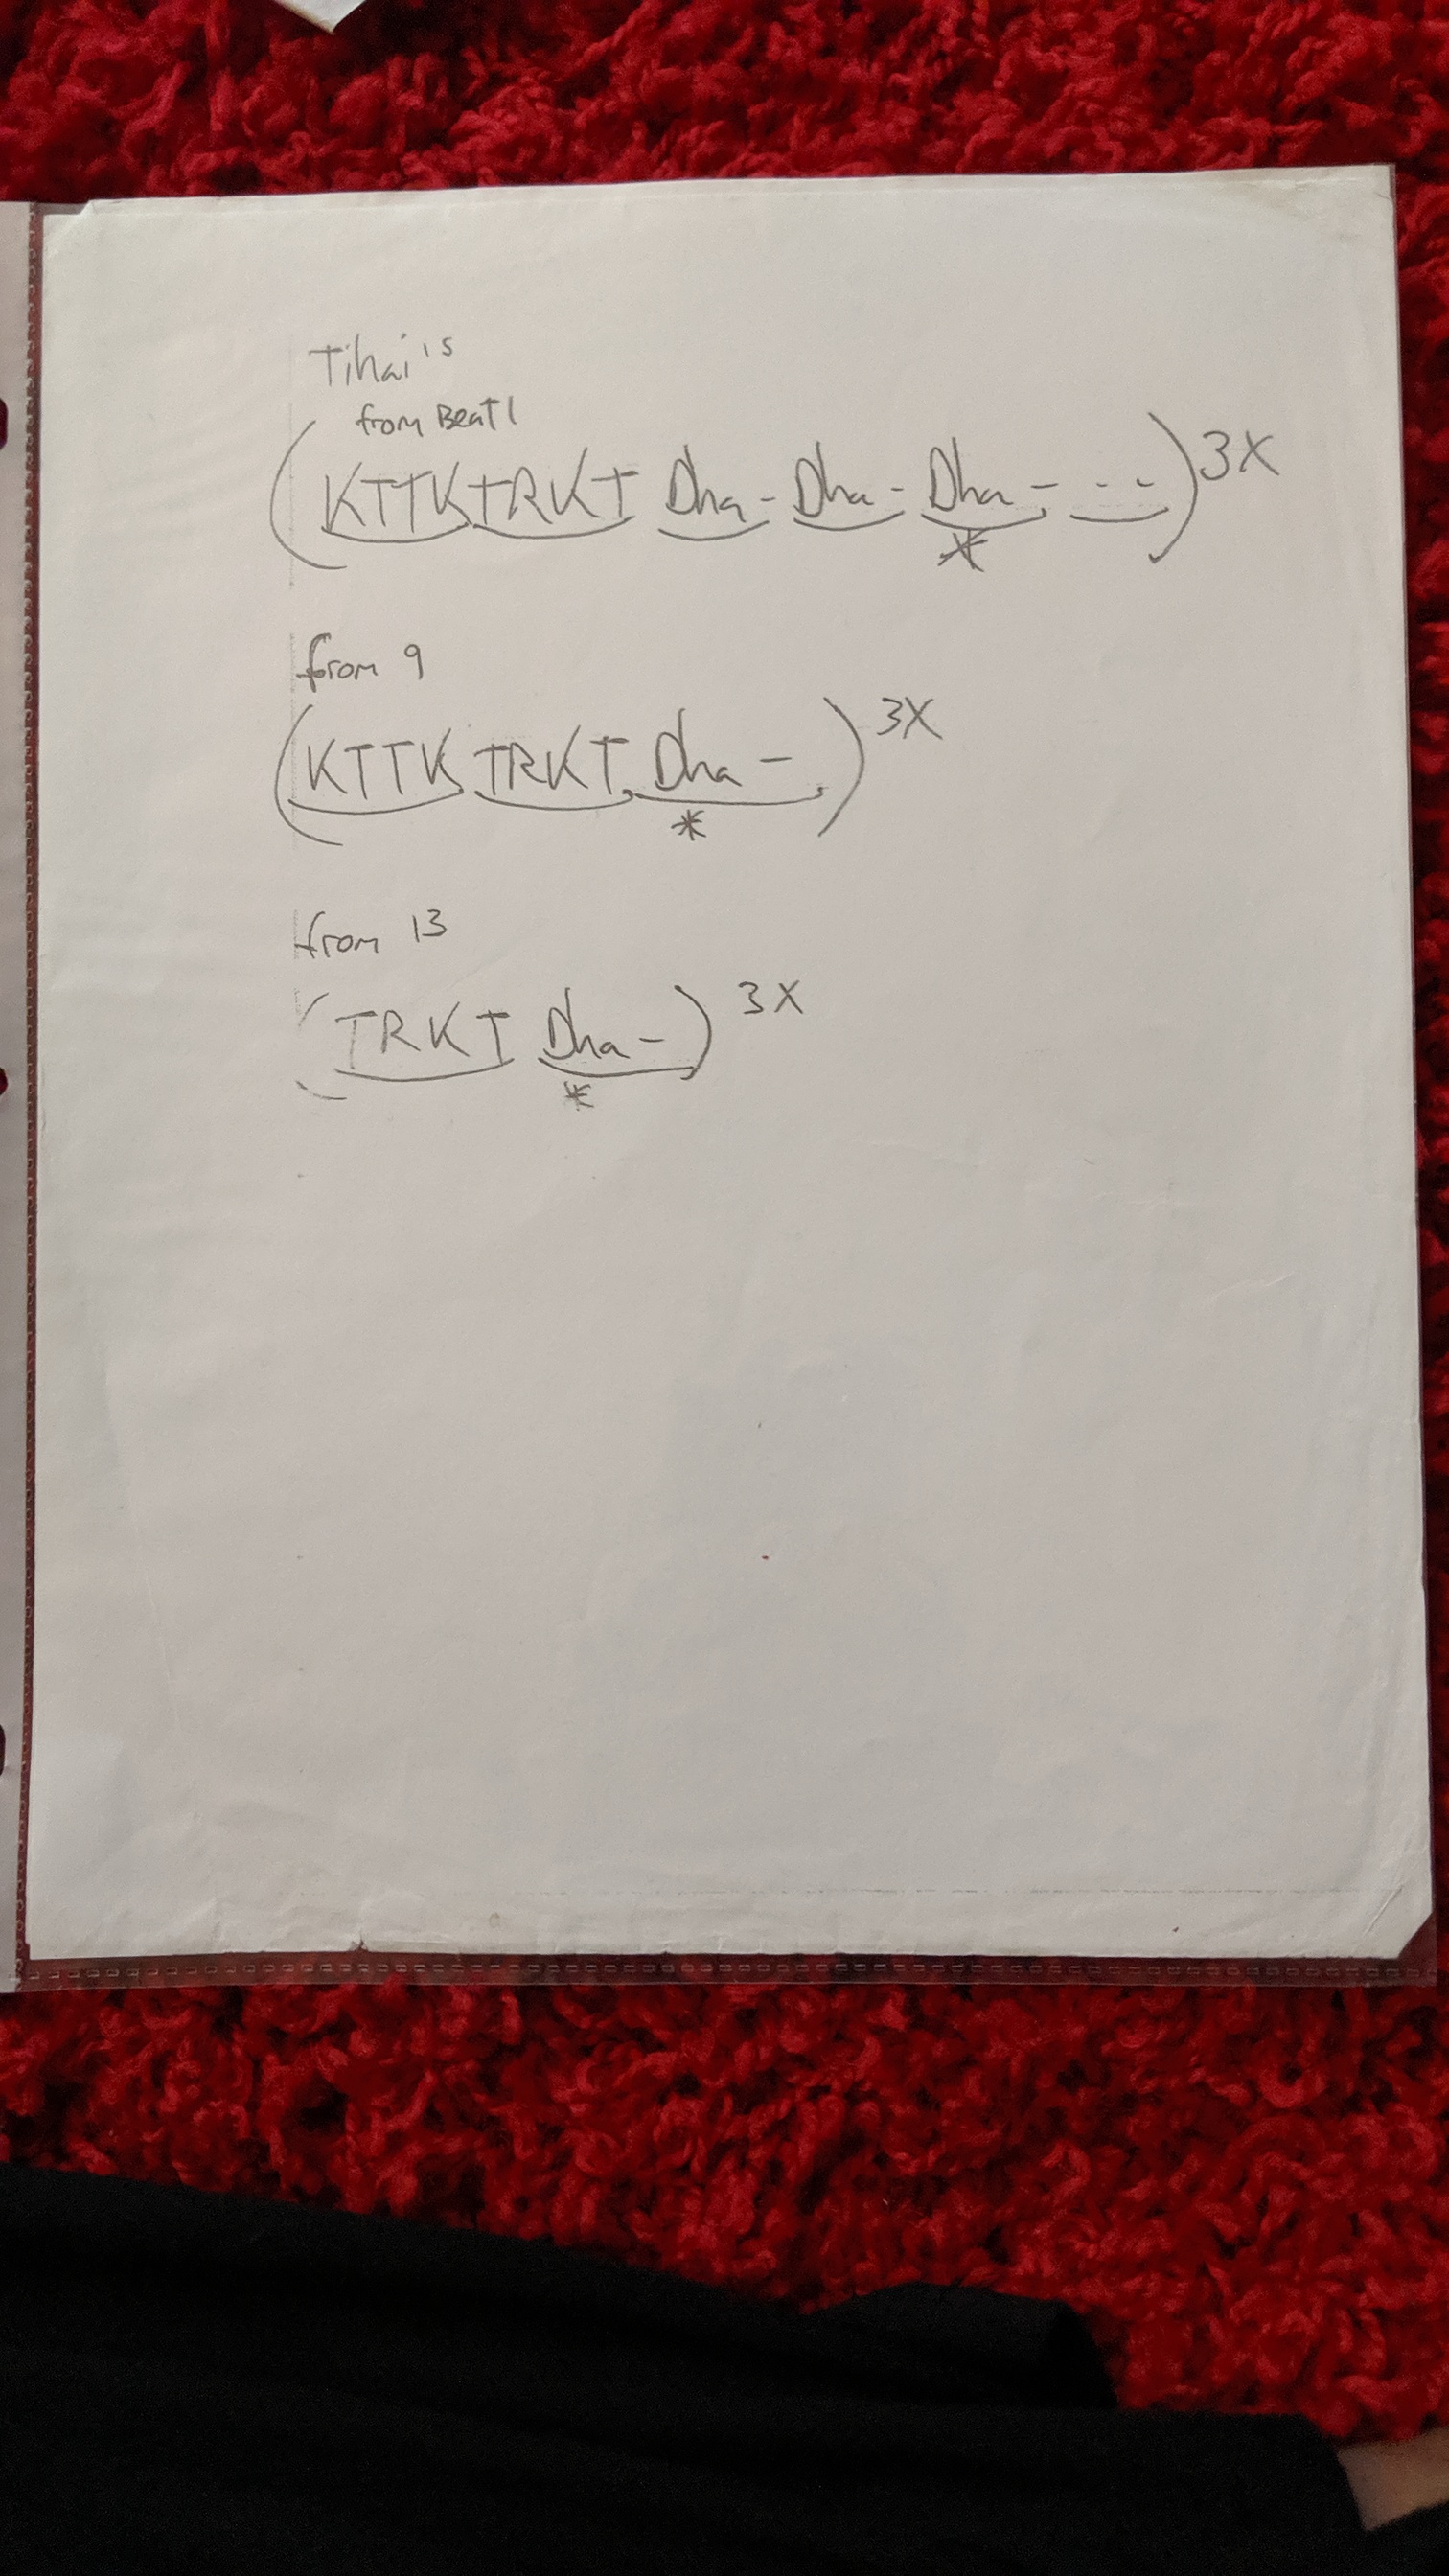 Tihai's
from Beat 1
(KTTKTRKT Dha - Dha - Dha - - -) 3X
*
from 9
(KTTK TRKT Dha -) 3X
*
from 13
(TRKT Dha -) 3X
*